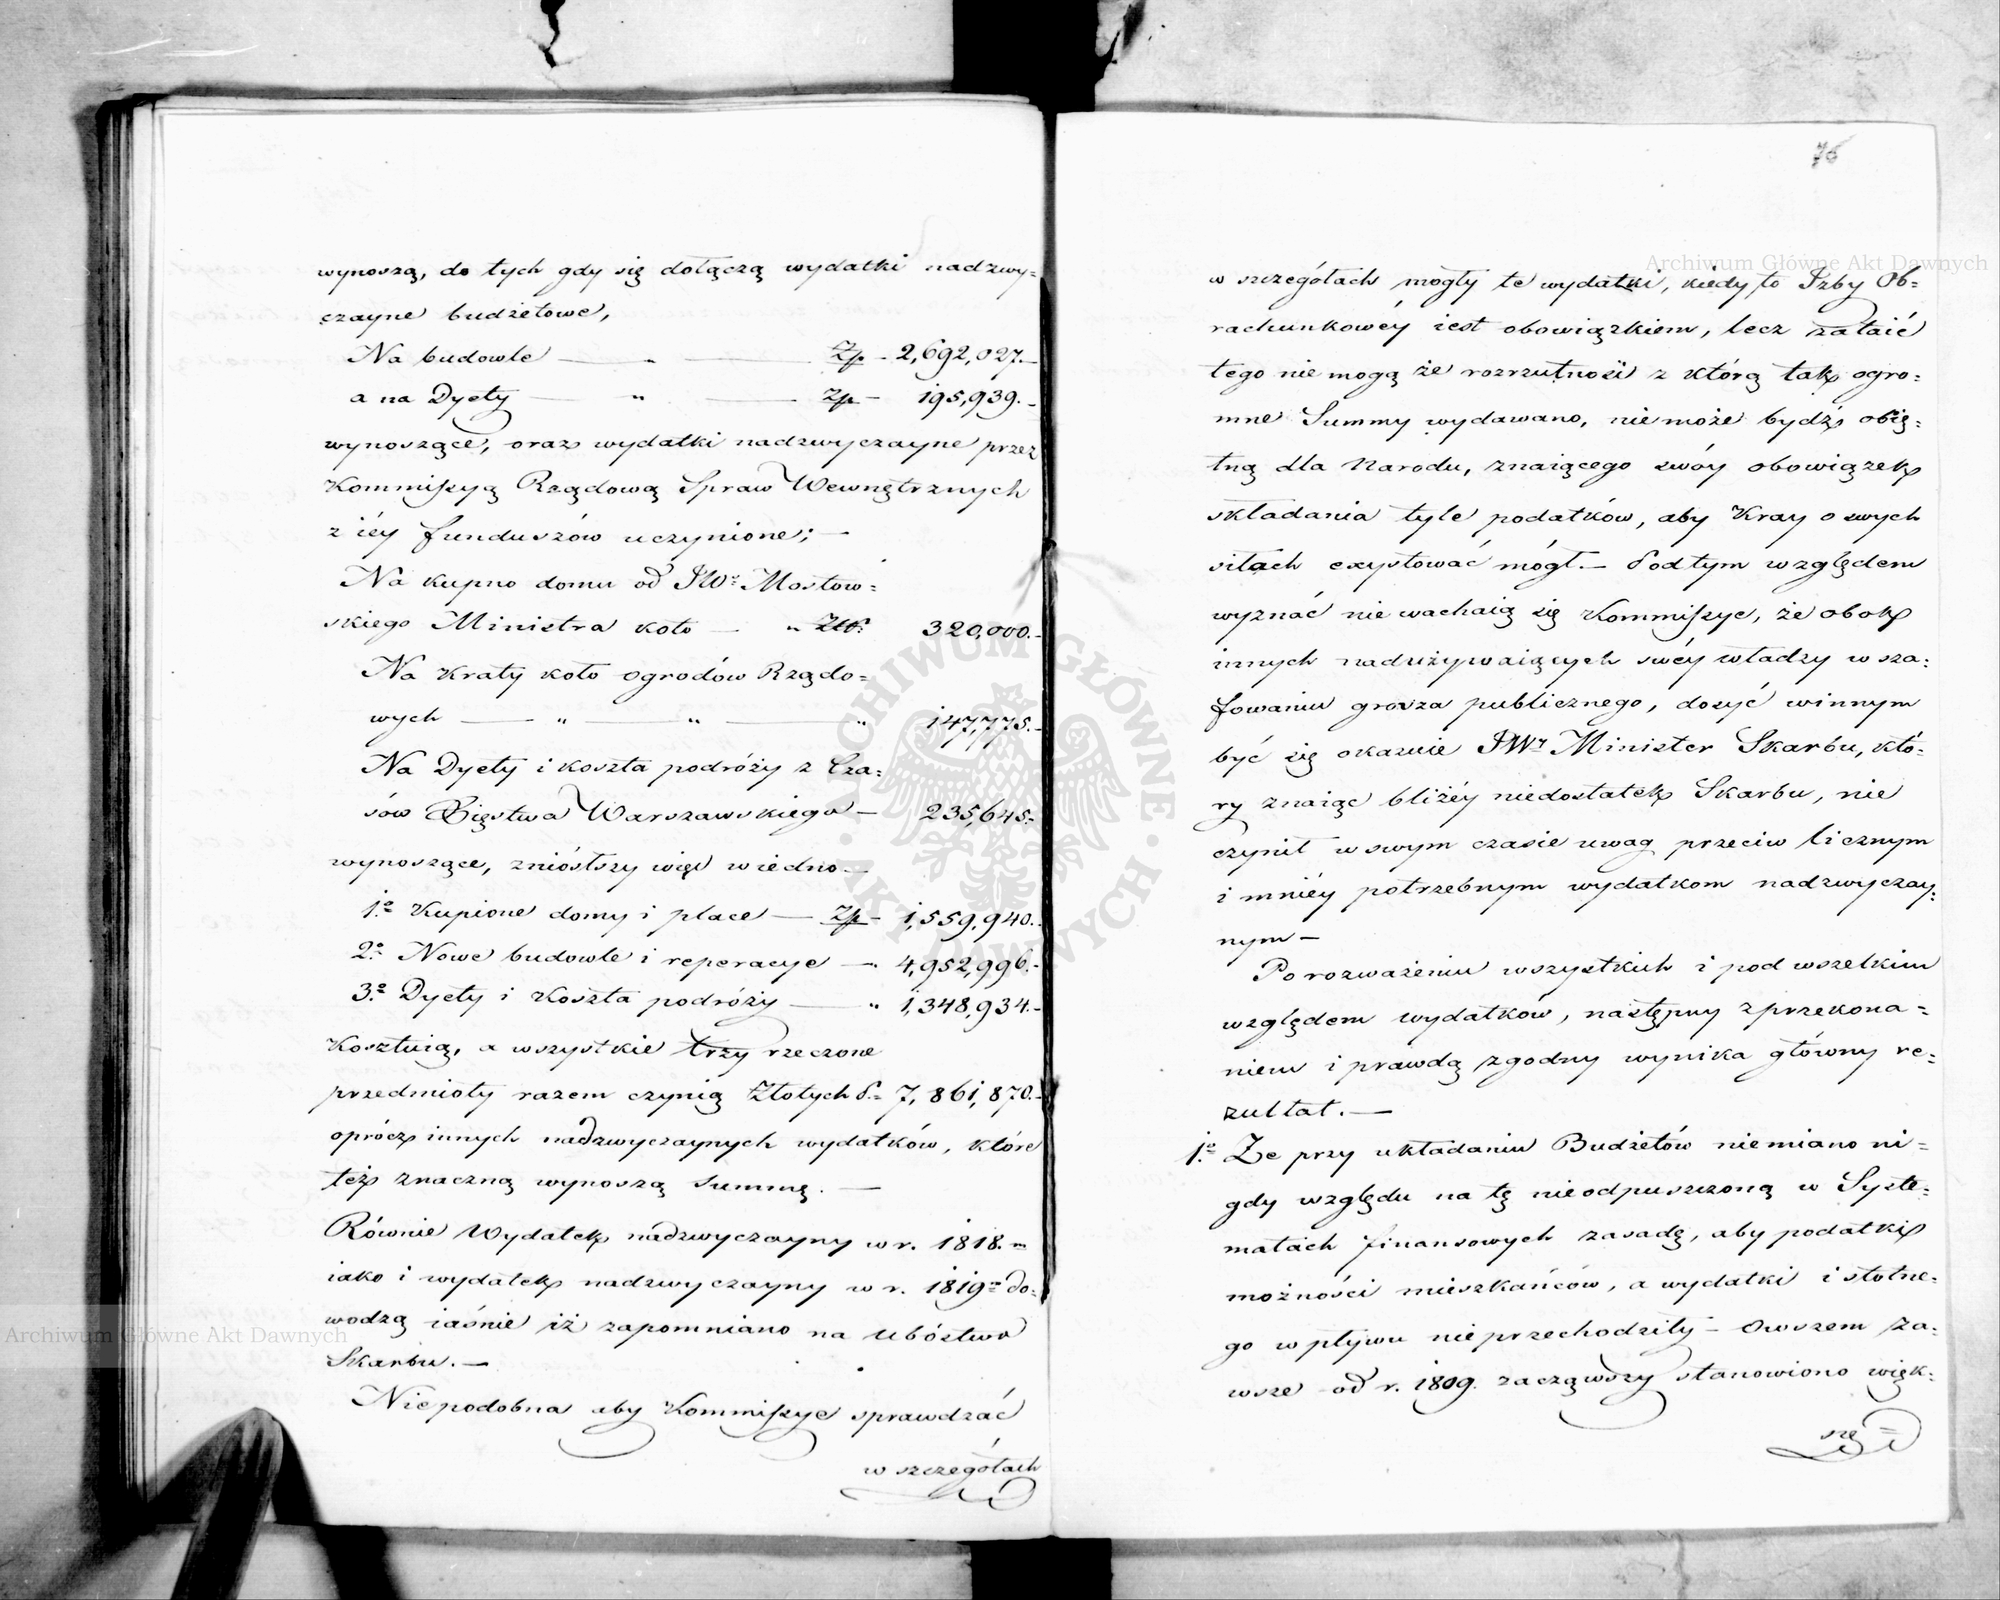 wynoszą, do tych gdy się dołączą wydatki nadzwy-
czayne budżetowe,
Na budowle — „ — Zp – 2,692,027.—
a na Dyety — „ — Zp – 195,939.–
wynoszące, oraz wydatki nadzwyczayne przez
Kommissyą Rządową Spraw Wewnętrznych
z iéy funduszów uczynione; —
Na kupno domu od JWo Mostow-
skiego Ministra koło — „ Złp. 320,000.–
Na Kraty koło ogrodów Rządo-
wych — „ — „ — „ 147,775.–
Na Dyety i koszta podróży z Cza-
sów Xięstwa Warszawskiego — 235,645.–
wynoszące, zniósłszy więc w iedno —
1o Kupione domy i place — Zp – 1,559,940.–
2o Nowe budowle i reperacye — „ 4,952,996.–
3o Dyety i Koszta podróży — „ 1,348,934.–
Kosztuią, a wszystkie trzy rzeczone
przedmioty razem czynią Złotych P. 7,861,870.–
oprócz innych nadzwyczaynych wydatków, które
też znaczną wynoszą Summę. —
Równie Wydatek nadzwyczayny w r. 1818.m
iako i wydatek nadzwyczayny w r. 1819m do-
wodzą iaśnie iż zapomniano na Ubóstwo
Skarbu. —
Niepodobna aby Kommissye sprawdzać
w szczegółach
76
w szczegółach mogły te wydatki, kiedy to Izby Ob-
rachunkowéy iest obowiązkiem, lecz zataić
tego nie mogą że rozrzutności z którą tak ogro-
mne Summy wydawano, nie może bydź obię-
tną dla Narodu, znaiącego swóy obowiązek
składania tyle podatków, aby Kray o swych
siłach exystować mógł. — Pod tym względem
wyznać nie wachaią się Kommissye, że obok
innych nadużywaiących swéy władzy w sza-
fowaniu grosza publicznego, dosyć winnym
być się okazuie JWy Minister Skarbu, któ-
ry znaiąc bliżéy niedostatek Skarbu, nie
czynił w swym czasie uwag przeciw licznym
i mniéy potrzebnym wydatkom nadzwyczay-
nym —
Po rozważeniu wszystkich i pod wszelkim
względem wydatków, następny z przekona-
niem i prawdą zgodny wynika główny re-
zultat. —
1o Że przy układaniu Budżetów nie miano ni-
gdy względu na tę nieodpuszczoną w Syste-
matach finansowych zasadę, aby podatki
możności mieszkańców, a wydatki istotne-
go wpływu nie przechodziły — Owszem za-
wsze od r. 1809. zacząwszy stanowiono więk-
sze
Archiwum Główne Akt Dawnych
Archiwum Główne Akt Dawnych
ARCHIWUM GŁÓWNE · AKT DAWNYCH ·